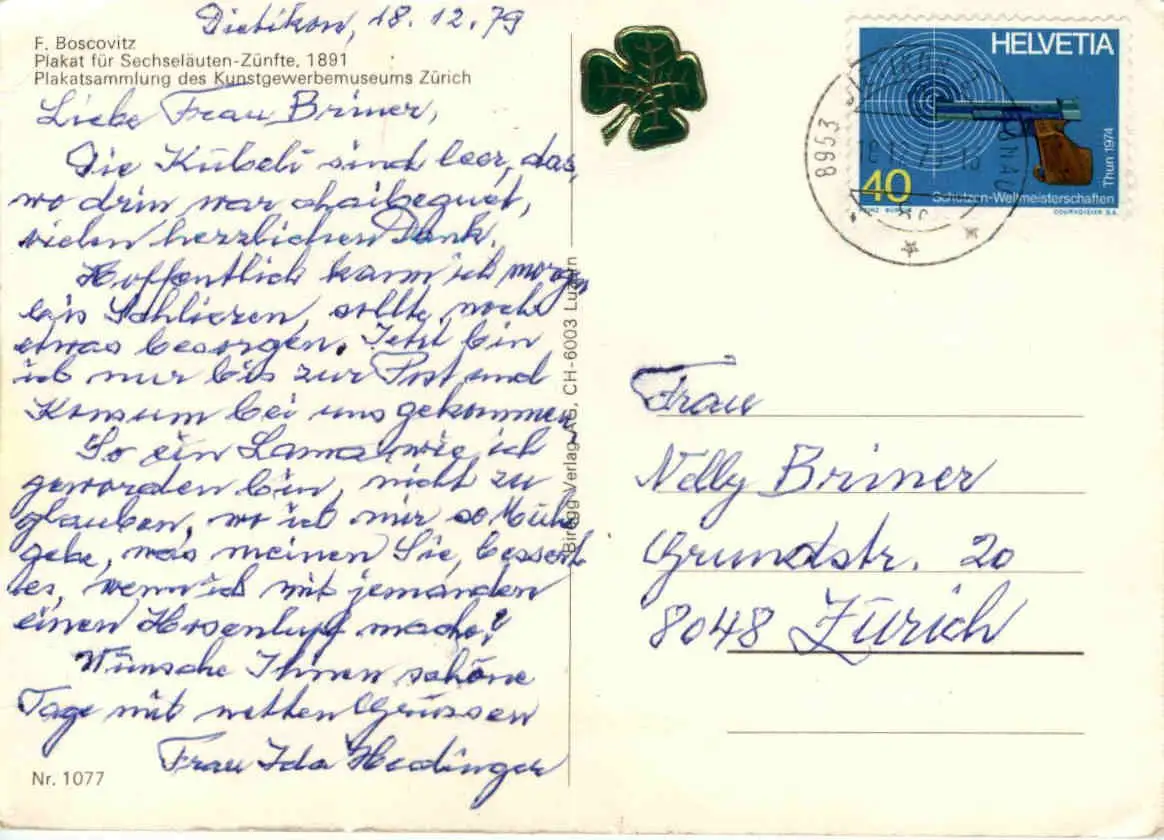 Dietikon, 18.12.79
F. Boscovitz
Plakat für Sechseläuten-Zünfte, 1891
Plakatsammlung des Kunstgewerbemuseums Zürich
Liebe Frau Briner,
Die Kübeli sind leer, das,
wo drin war chaibeguet,
vielen herzlichen Dank.
Hoffentlich kann ich morgen
bis Schlieren, sollte noch
etwas besorgen. Jetzt bin
ich nur bis zur Post und
Konsum bei uns gekommen.
So ein Lama, wie ich
geworden bin, nicht zu
glauben, wo ich mir so Mühe
gebe, was meinen Sie, bessert
es, wenn ich mit jemanden
einen Hosenlupf mache?
Wünsche Ihnen schöne
Tage mit netten Grüssen
Frau Ida Hedinger
Nr. 1077
Biregg Verlag AG, CH-6003 Luzern
HELVETIA
40
Schützen-Weltmeisterschaften
Thun 1974
COURVOISIER S.A.
8953
Frau
Nelly Briner
Grundstr. 20
8048 Zürich